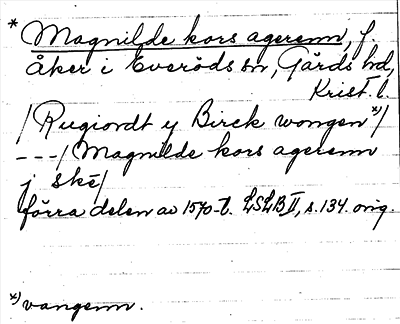 * Magnilde kors agerenn, f.
åker i Everöds sn, Gärds hd,
Krist. l.
/Rugiordt y Birck wongen *)/
---/Magnilde kors agerenn
j ske/
förra delen av 1570-t. LSLB II, s. 134. orig.
*) vangenn.